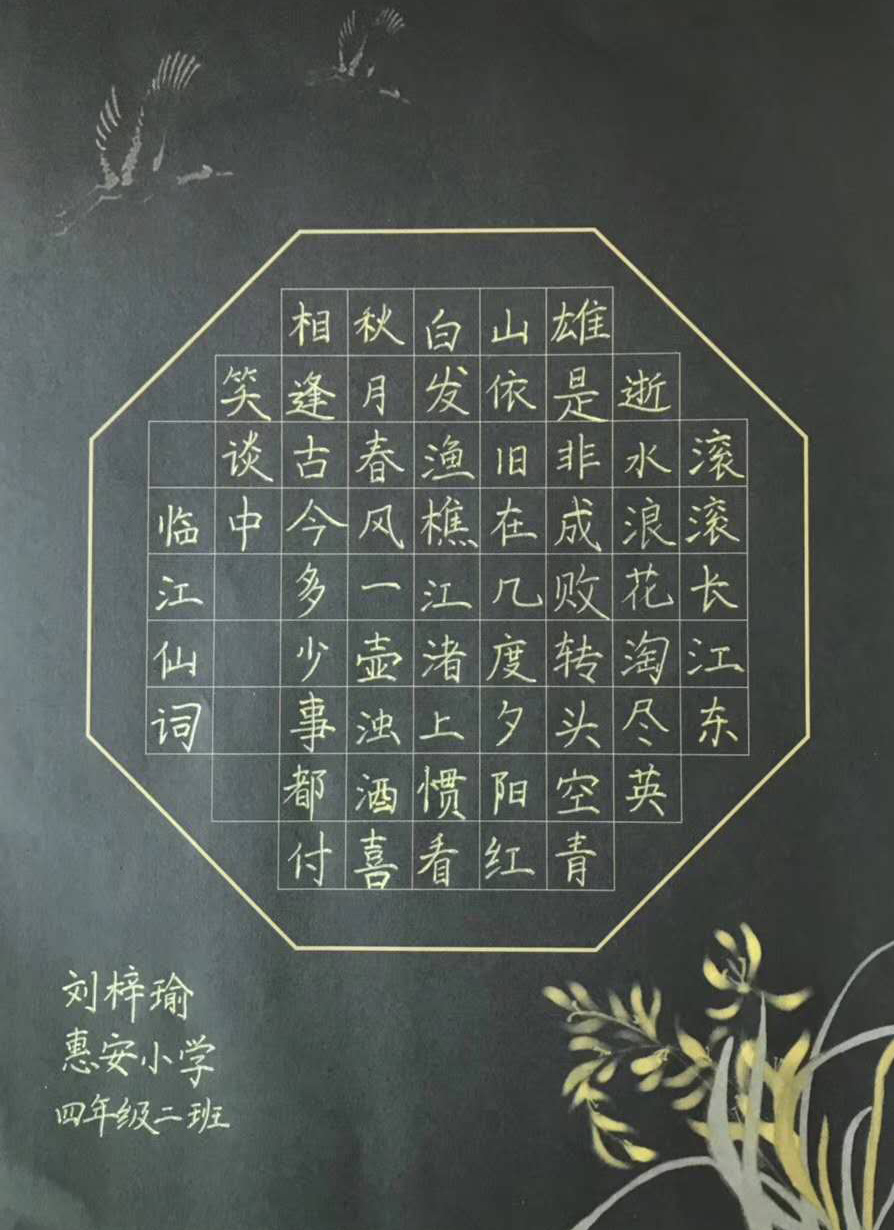 滚滚长江东
逝水浪花淘尽英
雄是非成败转头空青
山依旧在几度夕阳红
白发渔樵江渚上惯看
秋月春风一壶浊酒喜
相逢古今多少事都付
笑谈中
临江仙词
刘梓瑜
惠安小学
四年级二班